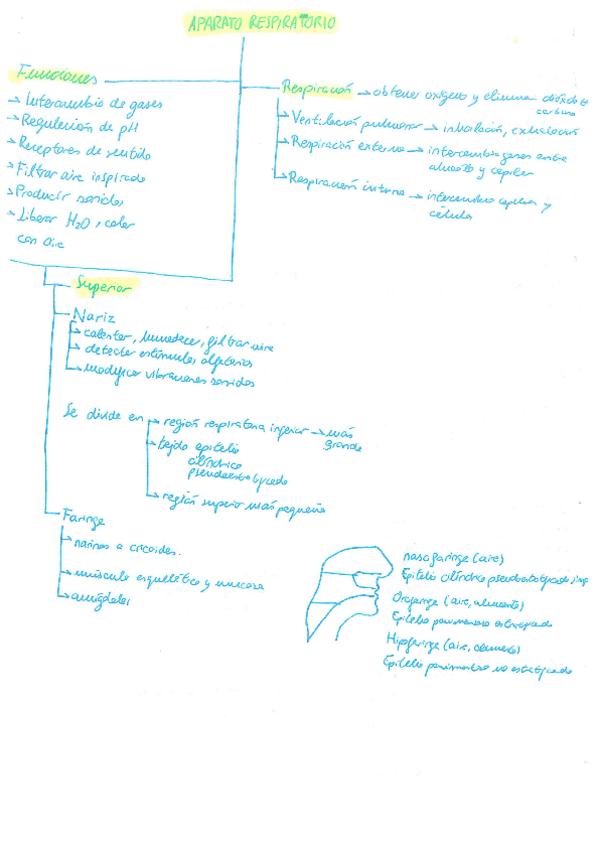 APARATO RESPIRATORIO
Funciones
→ Intercambio de gases
→ Regulación de pH
→ Receptores de sentido
→ Filtrar aire inspirado
→ Producir sonidos
→ Liberar H2O, calor
con aire
Respiración → obtener oxígeno y elimina dióxido de
carbono
→ Ventilación pulmonar → inhalación, exhalación
→ Respiración externa → intercambio gases entre
alveolo y capilar
→ Respiración interna → intercambio capilar y
célula
Superior
Nariz
→ calentar, humedecer, filtrar aire
→ detectar estímulos olfatorios
→ modificar vibraciones sonidos
Se divide en → región respiratoria inferior → más
grande
→ tejido epitelio
cilíndrico
pseudoestratificado
→ región superior más pequeña
Faringe
→ narinas a cricoides.
→ músculo esquelético y mucosa
→ amígdalas
nasofaringe (aire)
Epitelio cilíndrico pseudoestratificado
Orofaringe (aire, alimento)
Epitelio pavimentoso estratificado
Hipofaringe (aire, alimento)
Epitelio pavimentoso no estratificado